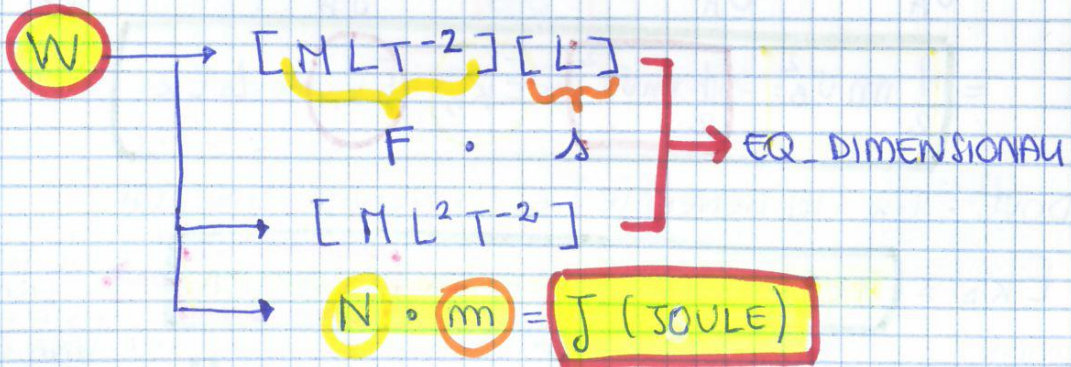 W → [MLT⁻²][L]
F · s
→ EQ_DIMENSIONALI
[ML²T⁻²]
N · m = J (JOULE)